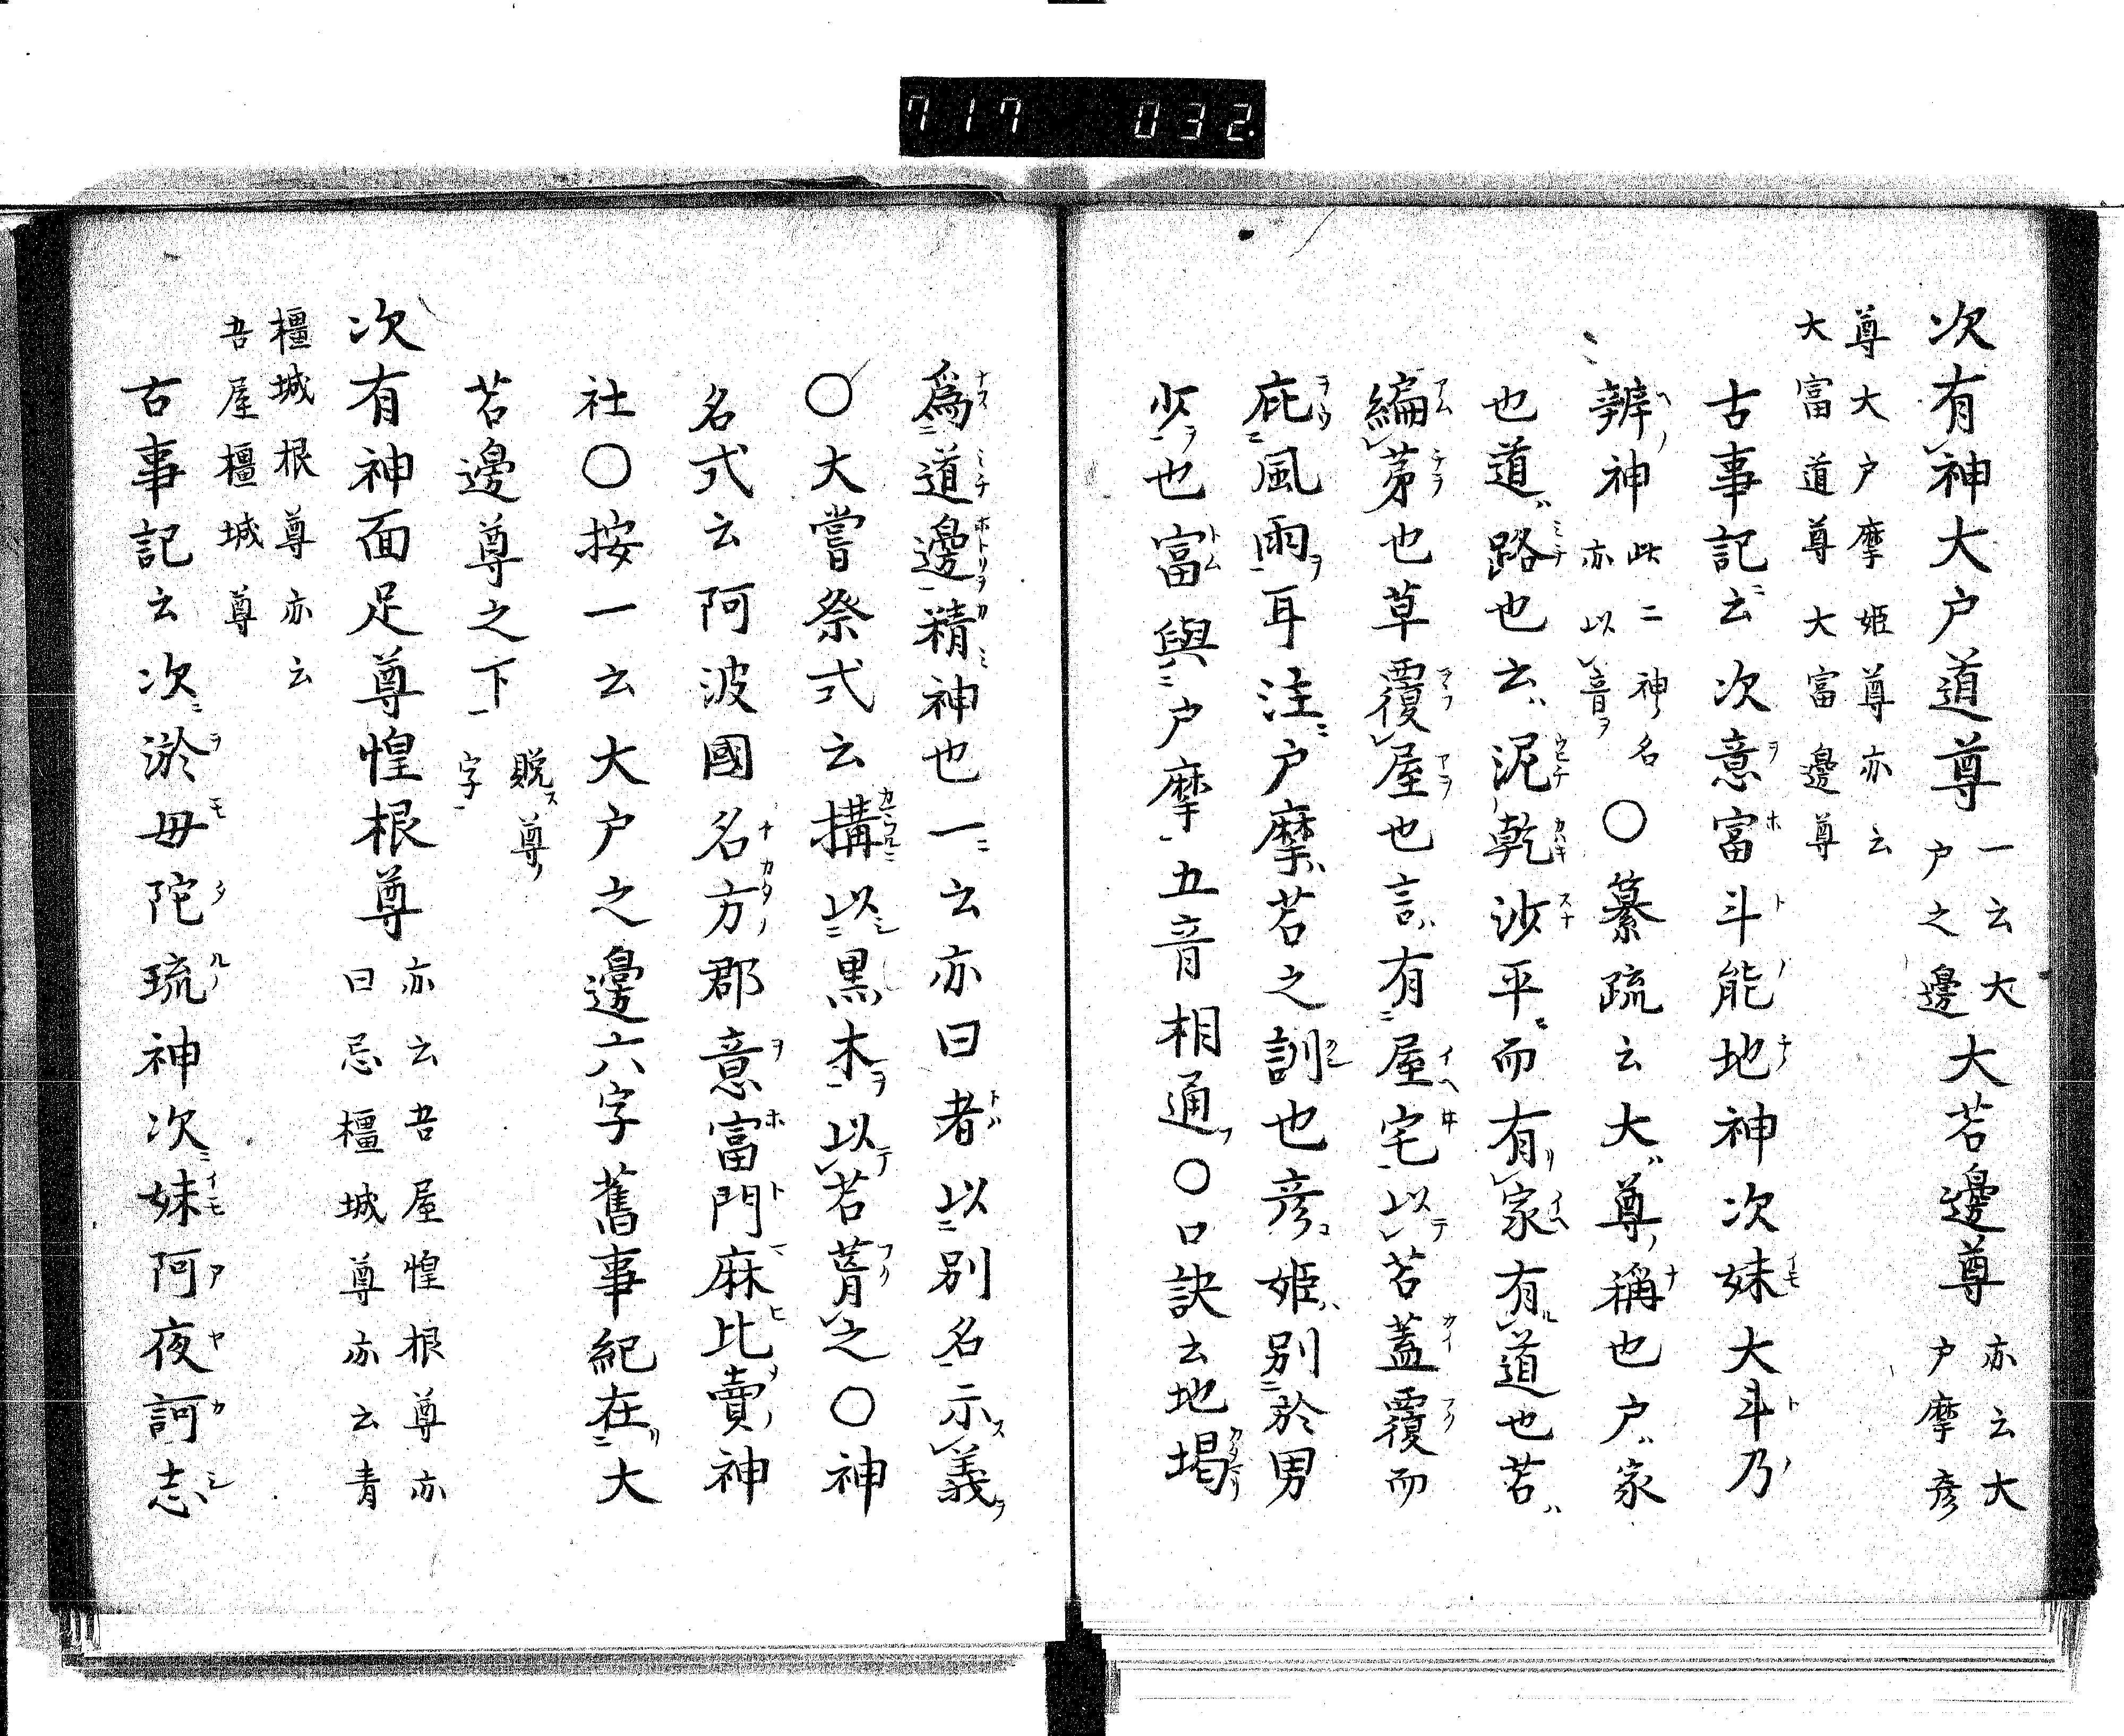 717 032
次有神大戸道尊 一云大戸之邊 大苫邊尊 亦云大戸摩彦
尊大戸摩姫尊亦云
大富道尊大富邊尊
古事記云次意富斗能地神次妹大斗乃
辨神 此二神名亦以音 ○纂疏云大尊稱也戸家
也道路也云泥乾沙平而有家有道也苫
編茅也草覆屋也言有屋宅以苫蓋覆而
庇風雨耳注戸摩苫之訓也彦姫別於男
少也富與戸摩五音相通○口訣云地堨
爲道邊精神也一云亦曰者以別名示義
○大嘗祭式云搆以黒木以苫葺之○神
名式云阿波國名方郡意富門麻比賣神
社○按一云大戸之邊六字舊事紀在大
苫邊尊之下 脱尊字
次有神面足尊惶根尊 亦云吾屋惶根尊亦曰忌橿城尊亦云青
橿城根尊亦云
吾屋橿城尊
古事記云次淤母陀琉神次妹阿夜訶志